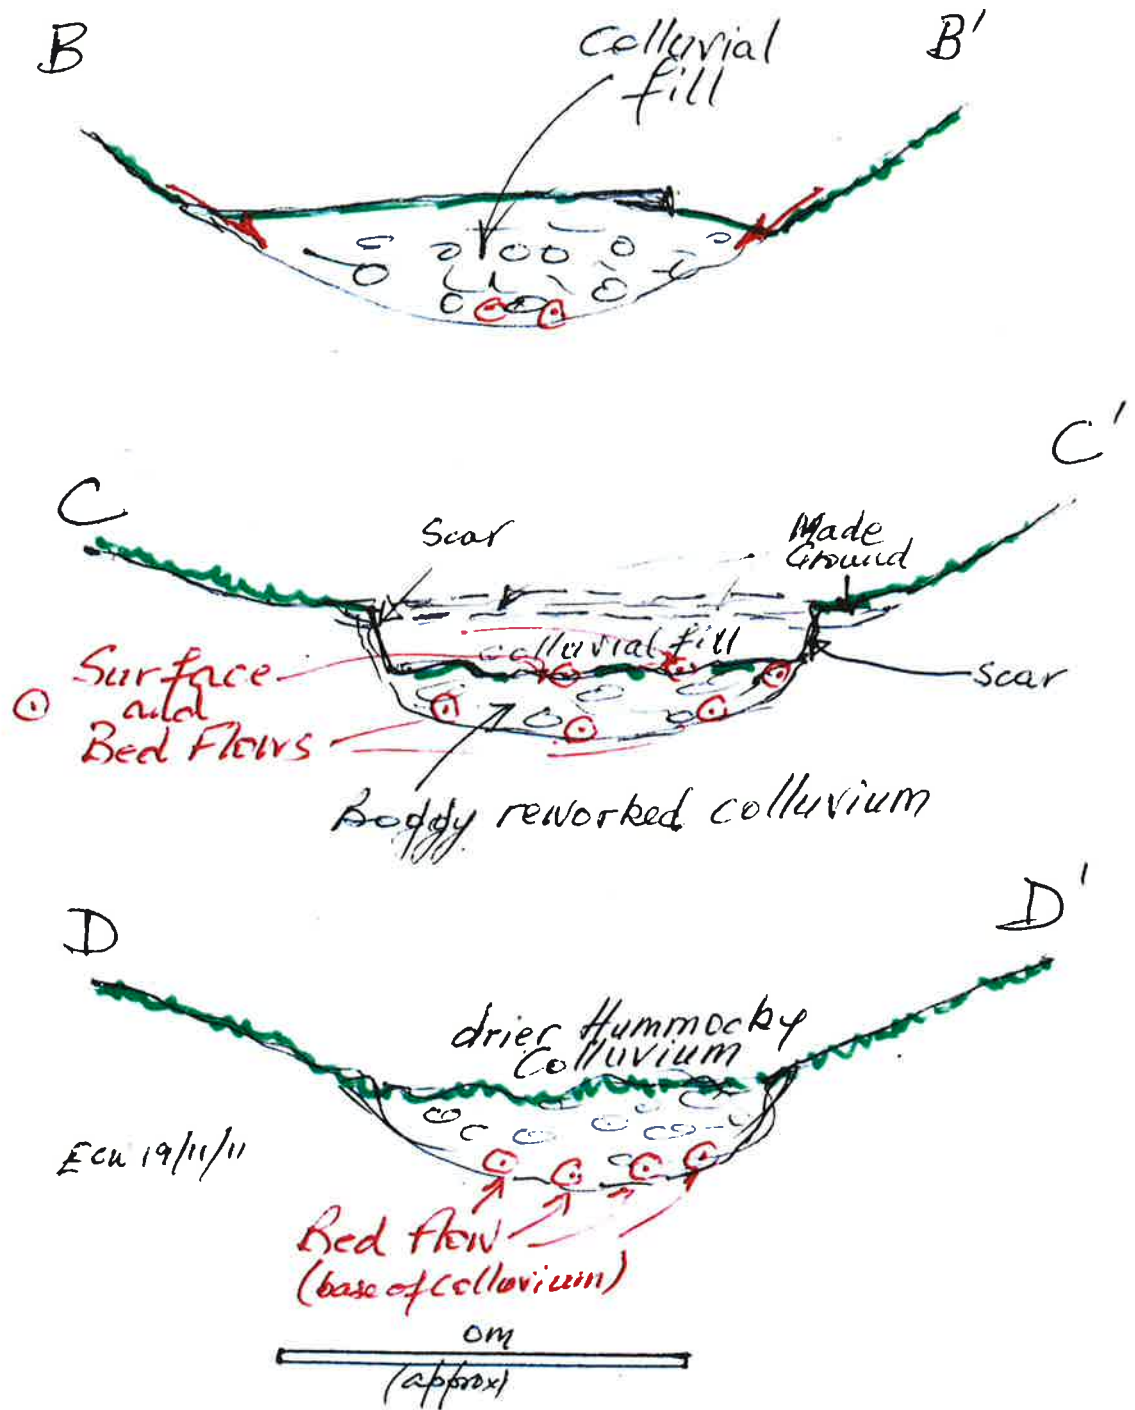 B
B'
Colluvial
fill
C
C'
Scar
Made
Ground
Colluvial fill
Surface
and
Bed Flows
Scar
Boggy reworked colluvium
D
D'
drier Hummocky
Colluvium
19/11/11
Bed flow
(base of colluvium)
0m
(approx)